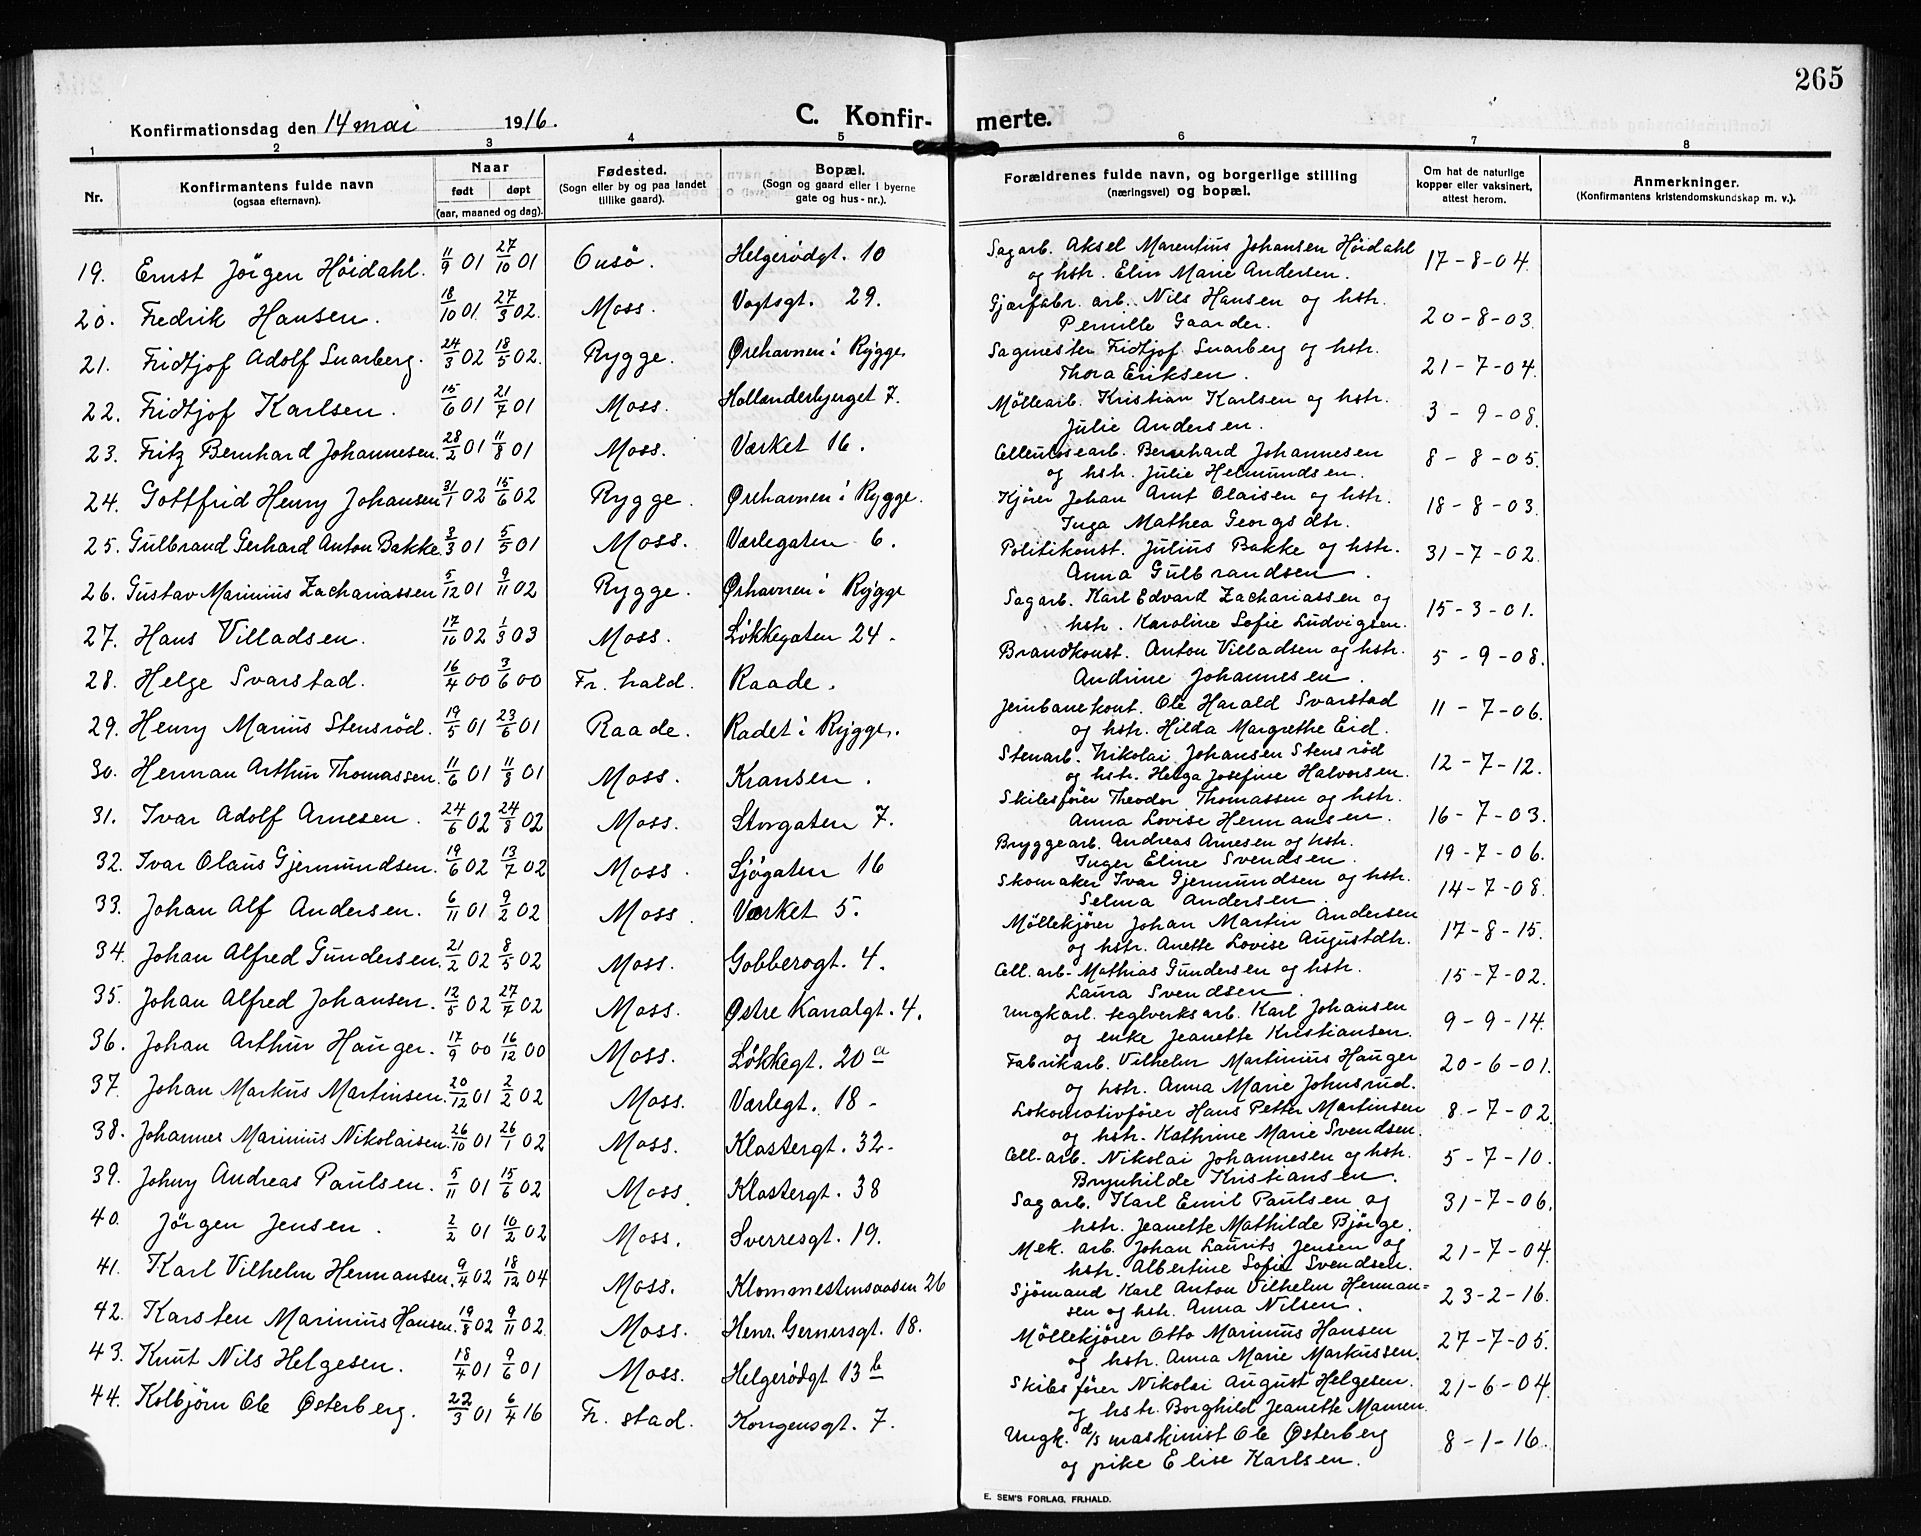 265
Konfirmationsdag den 14 mai 1916.
C. Konfir- merte.
1 2 3 4 5 6 7 8
Nr.
Konfirmantens fulde navn
(ogsaa efternavn).
Naar
født døpt
(aar, maaned og dag).
Fødested.
(Sogn eller by og paa landet
tillike gaard).
Bopæl.
(Sogn og gaard eller i byerne
gate og hus-nr.).
Forældrenes fulde navn, og borgerlige stilling
(næringsvei) og bopæl.
Om hat de naturlige
kopper eller vaksinert,
attest herom.
Anmerkninger.
(Konfirmantens kristendomskundskap m. v.).
19. Ernst Jörgen Höidahl. 11/9 01 27/10 01 Onsö. Helgerødgt. 10 Sagarb. Aksel Marentius Johansen Höidahl 17-8-04.
og hstr. Elin Marie Andersen.
20. Fredrik Hansen. 18/10 01. 27/3 02. Moss. Vogtsgt. 29. Gjærfabr. arb. Nils Hansen og hstr. 20-8-03.
Pernille Gaarder.
21. Fridtjof Adolf Snarberg. 24/3 02 18/5 02. Rygge. Ørehavnen i Rygge. Sagmester Fridtjof Snarberg og hstr. 21-7-04.
Thora Eriksen.
22. Fridtjof Karlsen. 15/6 01 21/7 01 Moss. Hollenderbjerget 7. Möllearb. Kristian Karlsen og hstr. 3-9-08.
Julie Andersen.
23. Fritz Bernhard Johannesen. 28/2 01 11/8 01 Moss. Værket 16. Cellulosearb. Bernhard Johannesen 8-8-05.
og hstr. Julie Helmundsen.
24. Gottfrid Henry Johansen 31/1 02 15/6 02 Rygge. Ørehavnen i Rygge. Kjører Johan Arnt Olaisen og hstr. 18-8-03.
Inga Mathea Georgsdtr.
25. Gulbrand Gerhard Anton Bakke 8/3 01 5/5 01 Moss. Værlegaten 6. Politikonst. Julius Bakke og hstr. 31-7-02.
Anna Gulbrandsen.
26. Gustav Marinius Zachariassen 5/12 01 9/11 02 Rygge. Ørhavnen i Rygge Sagarb. Karl Edvard Zachariassen og 15-3-01.
hstr. Karoline Sofie Ludvigsen.
27. Hans Villadsen. 17/10 02 1/3 03 Moss. Løkkegaten 24. Brandkonst. Anton Villadsen og hstr. 5-9-08.
Andrine Johannesen.
28. Helge Svarstad. 16/4 00 3/6 00 Fr. hald. Raade. Jernbanekont. Ole Harald Svarstad 11-7-06.
og hstr. Hilda Margrethe Eid.
29. Henry Marius Stensröd. 19/5 01 23/6 01 Raade. Radet i Rygge. Stenarb. Nikolai Johansen Stensröd 12-7-12.
og hstr. Helga Josefine Halvorsen.
30. Herman Arthur Thomassen. 11/6 01 11/8 01 Moss. Kransen. Skibsfører Theodor Thomassen og hstr. 16-7-03.
Anna Lovise Hermansen.
31. Ivar Adolf Arnesen. 24/6 02 24/8 02 Moss. Storgaten 7. Bryggearb. Andreas Arnesen og hstr. 19-7-06.
Inger Eline Svendsen.
32. Ivar Olaus Gjermundsen. 19/6 02 13/7 02 Moss. Sjøgaten 16 Skomaker Ivar Gjermundsen og hstr. 14-7-08.
Selma Andersen.
33. Johan Alf Andersen. 6/11 01 9/2 02 Moss. Værket 5. Möllekjører Johan Martin Andersen 17-8-15.
og hstr. Anette Lovise Augustdtr.
34. Johan Alfred Gundersen. 21/2 02 8/5 02 Moss. Gobberogt. 4. Cell. arb. Mathias Gundersen og hstr. 15-7-02.
Laura Svendsen.
35. Johan Alfred Johansen. 12/5 02 27/7 02 Moss. Østre Kanalgt. 4. Ungkarl. teglverksarb. Karl Johansen 9-9-14.
og enke Jeanette Kristiansen.
36. Johan Arthur Hauger. 17/9 00 16/12 00 Moss. Løkkegt. 20 a Fabrikarb. Vilhelm Martinius Hauger 20-6-01.
og hstr. Anna Marie Johnsrud.
37. Johan Markus Martinsen. 20/12 01 2/2 02 Moss. Værlegt. 18 - Lokomotivfører Hans Petter Martinsen 8-7-02.
og hstr. Kathrine Marie Svendsen.
38. Johannes Marinius Nikolaisen. 26/10 01 26/1 02 Moss. Klostergt. 32- Cell. arb. Nikolai Johannesen og hstr. 5-7-10.
Brynhilde Kristiansen.
39. Johny Andreas Paulsen. 5/11 01 15/6 02 Moss. Klostergt. 38 Sagarb. Karl Emil Paulsen og 31-7-06.
hstr. Jeanette Mathilde Bjørge.
40. Jörgen Jensen. 2/2 01 10/2 02 Moss. Sverresgt. 19. Mek. arb. Johan Laurits Jensen og 21-7-04.
hstr. Albertine Sofie Svendsen.
41. Karl Vilhelm Hermansen. 9/4 02 18/12 04 Moss. Klommestensaasen 26 Sjømand Karl Anton Vilhelm Herman= 23-2-16.
sen og hstr. Anna Nilsen.
42. Karsten Marinius Hansen. 19/8 02 9/11 02 Moss. Henr. Gernersgt. 18. Möllekjører Otto Marinius Hansen 27-7-05.
og hstr. Anna Marie Markussen.
43. Knut Nils Helgesen. 18/4 01 9/6 01 Moss. Helgerødgt 13 b Skibsfører Nikolai August Helgesen. 21-6-04.
og hstr. Borghild Jeanette Mamen.
44. Kolbjörn Ole Østerberg. 22/3 01 6/4 16 Fr. stad. Kongensgt. 7. Ungk. d/s maskinist Ole Østerberg 8-1-16.
og pike Elise Karlsen.
E. SEM'S FORLAG, FR.HALD.